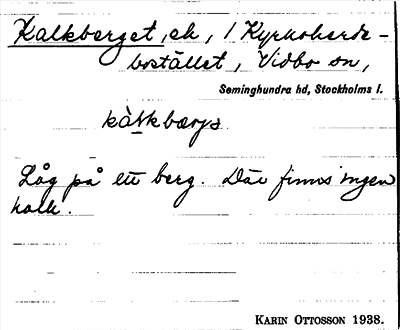 Kalkberget, ek, / Kyrkoherde-
bostället, Vidbo sn,
Seminghundra hd, Stockholms l.
kàlkbærjs
Låg på ett berg. Där finns ingen
kalk.
KARIN OTTOSSON 1938.